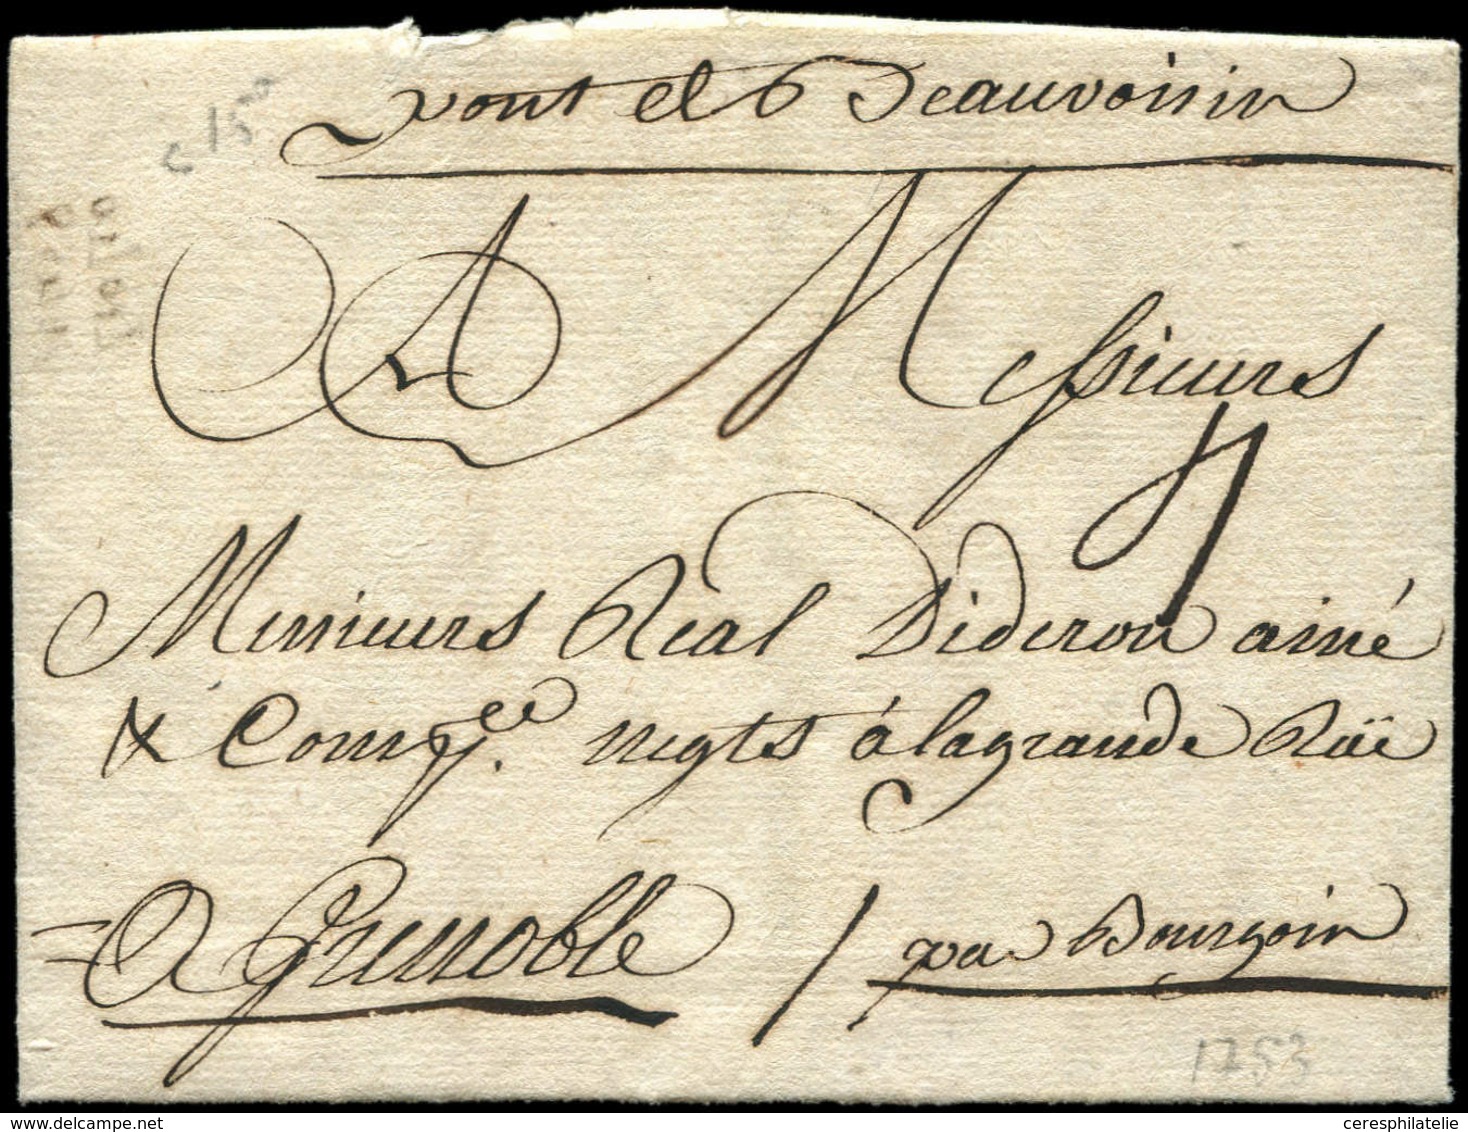 pont de Beauvoisin
c 15°
A Messieurs
Messieurs Real Dideron ainé
& Comp.ee negts à la grande Rüe
A Grenoble / par Bourgoin
1753
delcampe.net
ceresphilatelie